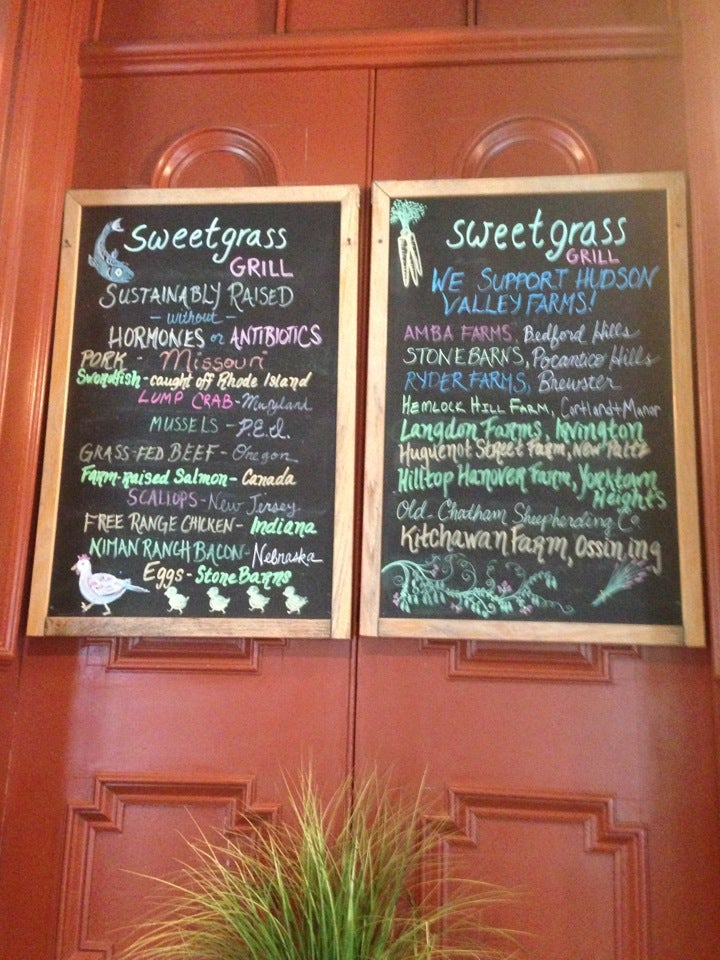 sweetgrass
GRILL
SUSTAINABLY RAISED
- without -
HORMONES or ANTIBIOTICS
PORK - Missouri
Swordfish - caught off Rhode Island
LUMP CRAB - Maryland
MUSSELS - P.E.I.
GRASS-FED BEEF - Oregon
Farm-raised Salmon - Canada
SCALLOPS - New Jersey
FREE RANGE CHICKEN - Indiana
NIMAN RANCH BACON - Nebraska
Eggs - Stone Barns
sweetgrass
GRILL
WE SUPPORT HUDSON
VALLEY FARMS!
AMBA FARMS, Bedford Hills
STONE BARNS, Pocantico Hills
RYDER FARMS, Brewster
HEMLOCK HILL FARM, Cortlandt Manor
Langdon Farms, Irvington
Huguenot Street Farm, New Paltz
Hilltop Hanover Farm, Yorktown
Heights
Old Chatham Sheepherding Co
Kitchawan Farm, Ossining